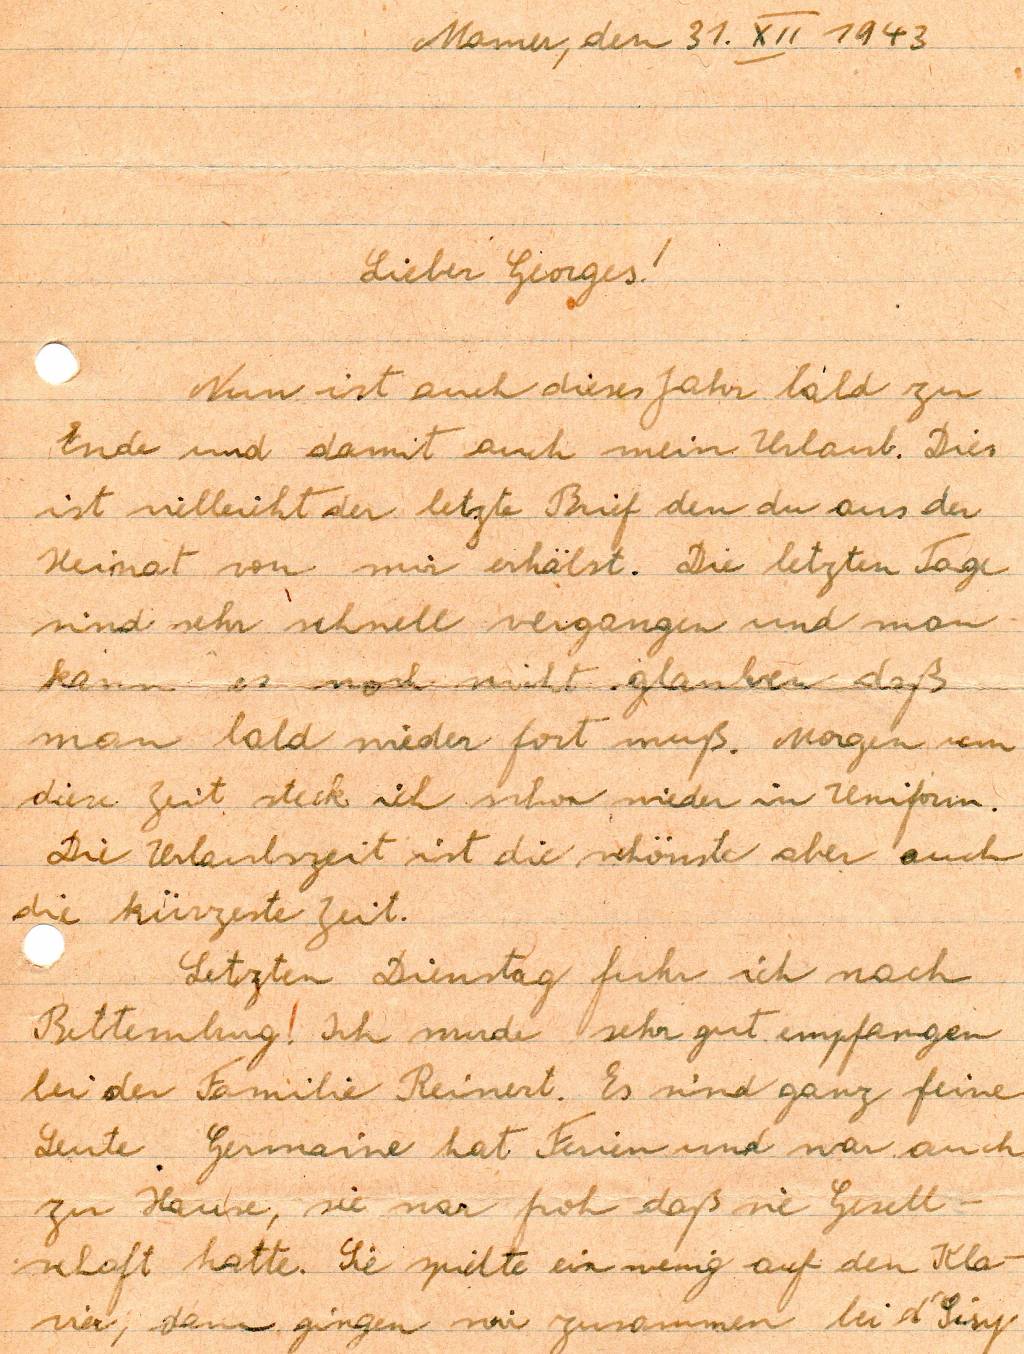 Mamer, den 31. XII 1943
Lieber Georges!
Nun ist auch dieses Jahr bald zu
Ende und damit auch mein Urlaub. Dies
ist vielleicht der letzte Brief den du aus der
Heimat von mir erhälst. Die letzten Tage
sind sehr schnell vergangen und man
kann es noch nicht glauben daß
man bald wieder fort muß. Morgen um
diese Zeit steck ich schon wieder in Uniform.
Die Urlaubszeit ist die schönste aber auch
die kürzeste Zeit.
Letzten Dienstag fuhr ich nach
Bettemburg! Ich wurde sehr gut empfangen
bei der Familie Reinert. Es sind ganz feine
Leute. Germaine hat Ferien und war auch
zu Hause, sie war froh daß sie Gesell-
schaft hatte. Sie spielte ein wenig auf den Kla-
vier, dann gingen wir zusammen bei d'Sisy